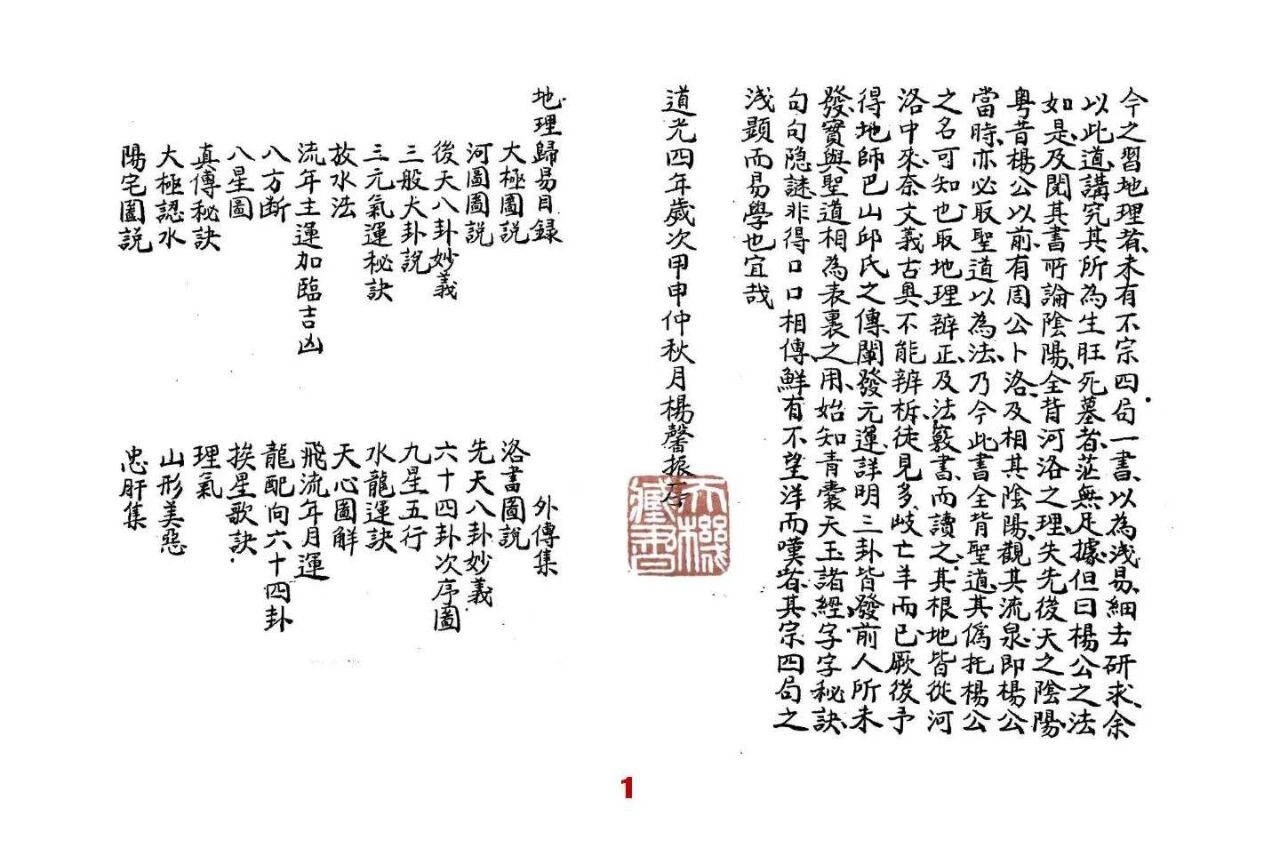 今之習地理者未有不宗四局一書以為浅易細去研求余
以此道講究其所為生旺死墓者茫無足據但曰楊公之法
如是及閱其書所論陰陽全背河洛之理失先後天之陰陽
粤昔楊公以前有周公卜洛及相其陰陽觀其流泉即楊公
當時亦必取聖道以為法乃今此書全背聖道其偽托楊公
之名可知也取地理辨正及法竅書而讀之其根地皆從河
洛中來奈文義古奥不能辨析徒見多岐亡羊而已厥後予
得地師巴山邱氏之傳闡發元運詳明三卦皆發前人所未
發實與聖道相為表裏之用始知青囊天玉諸經字字秘訣
句句隐謎非得口口相傳鮮有不望洋而嘆者其宗四局之
浅顕而易學也宜哉
道光四年歲次甲申仲秋月楊馨振
天機
藏書
地理歸易目録
外傳集
大極圖説
洛書圖説
河圖圖説
先天八卦妙義
後天八卦妙義
六十四卦次序圖
三般大卦説
九星五行
三元氣運秘訣
水龍運訣
放水法
天心圖解
流年主運加臨吉凶
飛流年月運
八方断
龍配向六十四卦
八星圖
挨星歌訣
真傳秘訣
理氣
大極認水
山形美惡
陽宅圖説
忠肝集
1